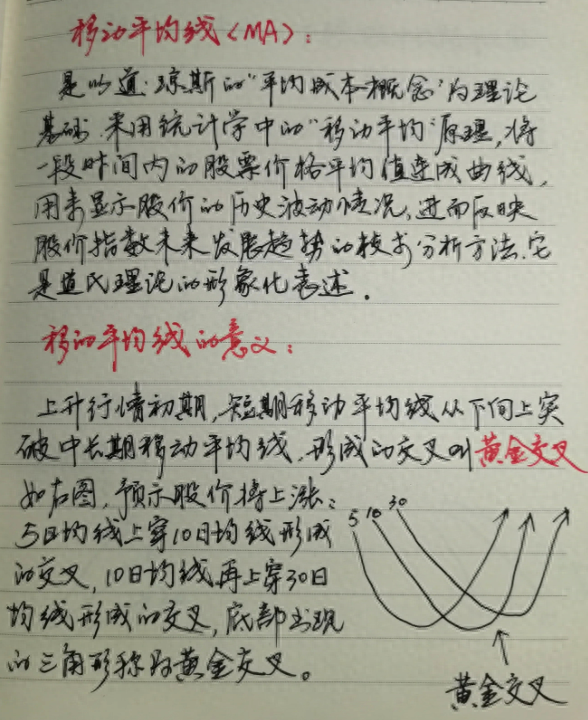 移动平均线<MA>:
是以道·琼斯的"平均成本概念"为理论
基础,采用统计学中的"移动平均"原理,将
一段时间内的股票价格平均值连成曲线,
用来显示股价的历史波动情况,进而反映
股价指数未来发展趋势的技术分析方法.它
是道氏理论的形象化表述.
移动平均线的意义:
上升行情初期,短期移动平均线从下向上突
破中长期移动平均线,形成的交叉叫黄金交叉
如右图,预示股价将上涨:
5日均线上穿10日均线形成
的交叉,10日均线再上穿30日
均线形成的交叉,底部出现
的三角形称为黄金交叉。
5 10 30
黄金交叉